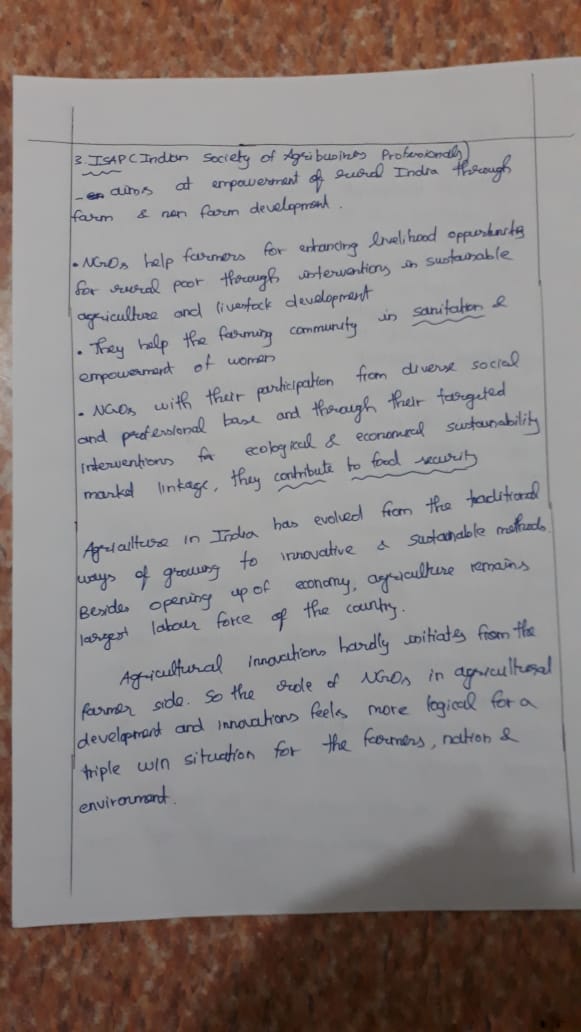 3. ISAP (Indian Society of Agribusiness Professionals)
- aims at empowerment of rural India through
farm & non farm development.
• NGOs help farmers for enhancing livelihood opportunity
for rural poor through interventions in sustainable
agriculture and livestock development
• They help the farming community in sanitation &
empowerment of women
• NGOs with their participation from diverse social
and professional base and through their targeted
interventions for ecological & economical sustainability
market linkage, they contribute to food security
Agriculture in India has evolved from the traditional
ways of growing to innovative & sustainable methods.
Besides opening up of economy, agriculture remains
largest labour force of the country.
Agricultural innovations hardly initiates from the
farmer side. So the role of NGOs in agricultural
development and innovations feels more logical for a
triple win situation for the farmers, nation &
enviroument.